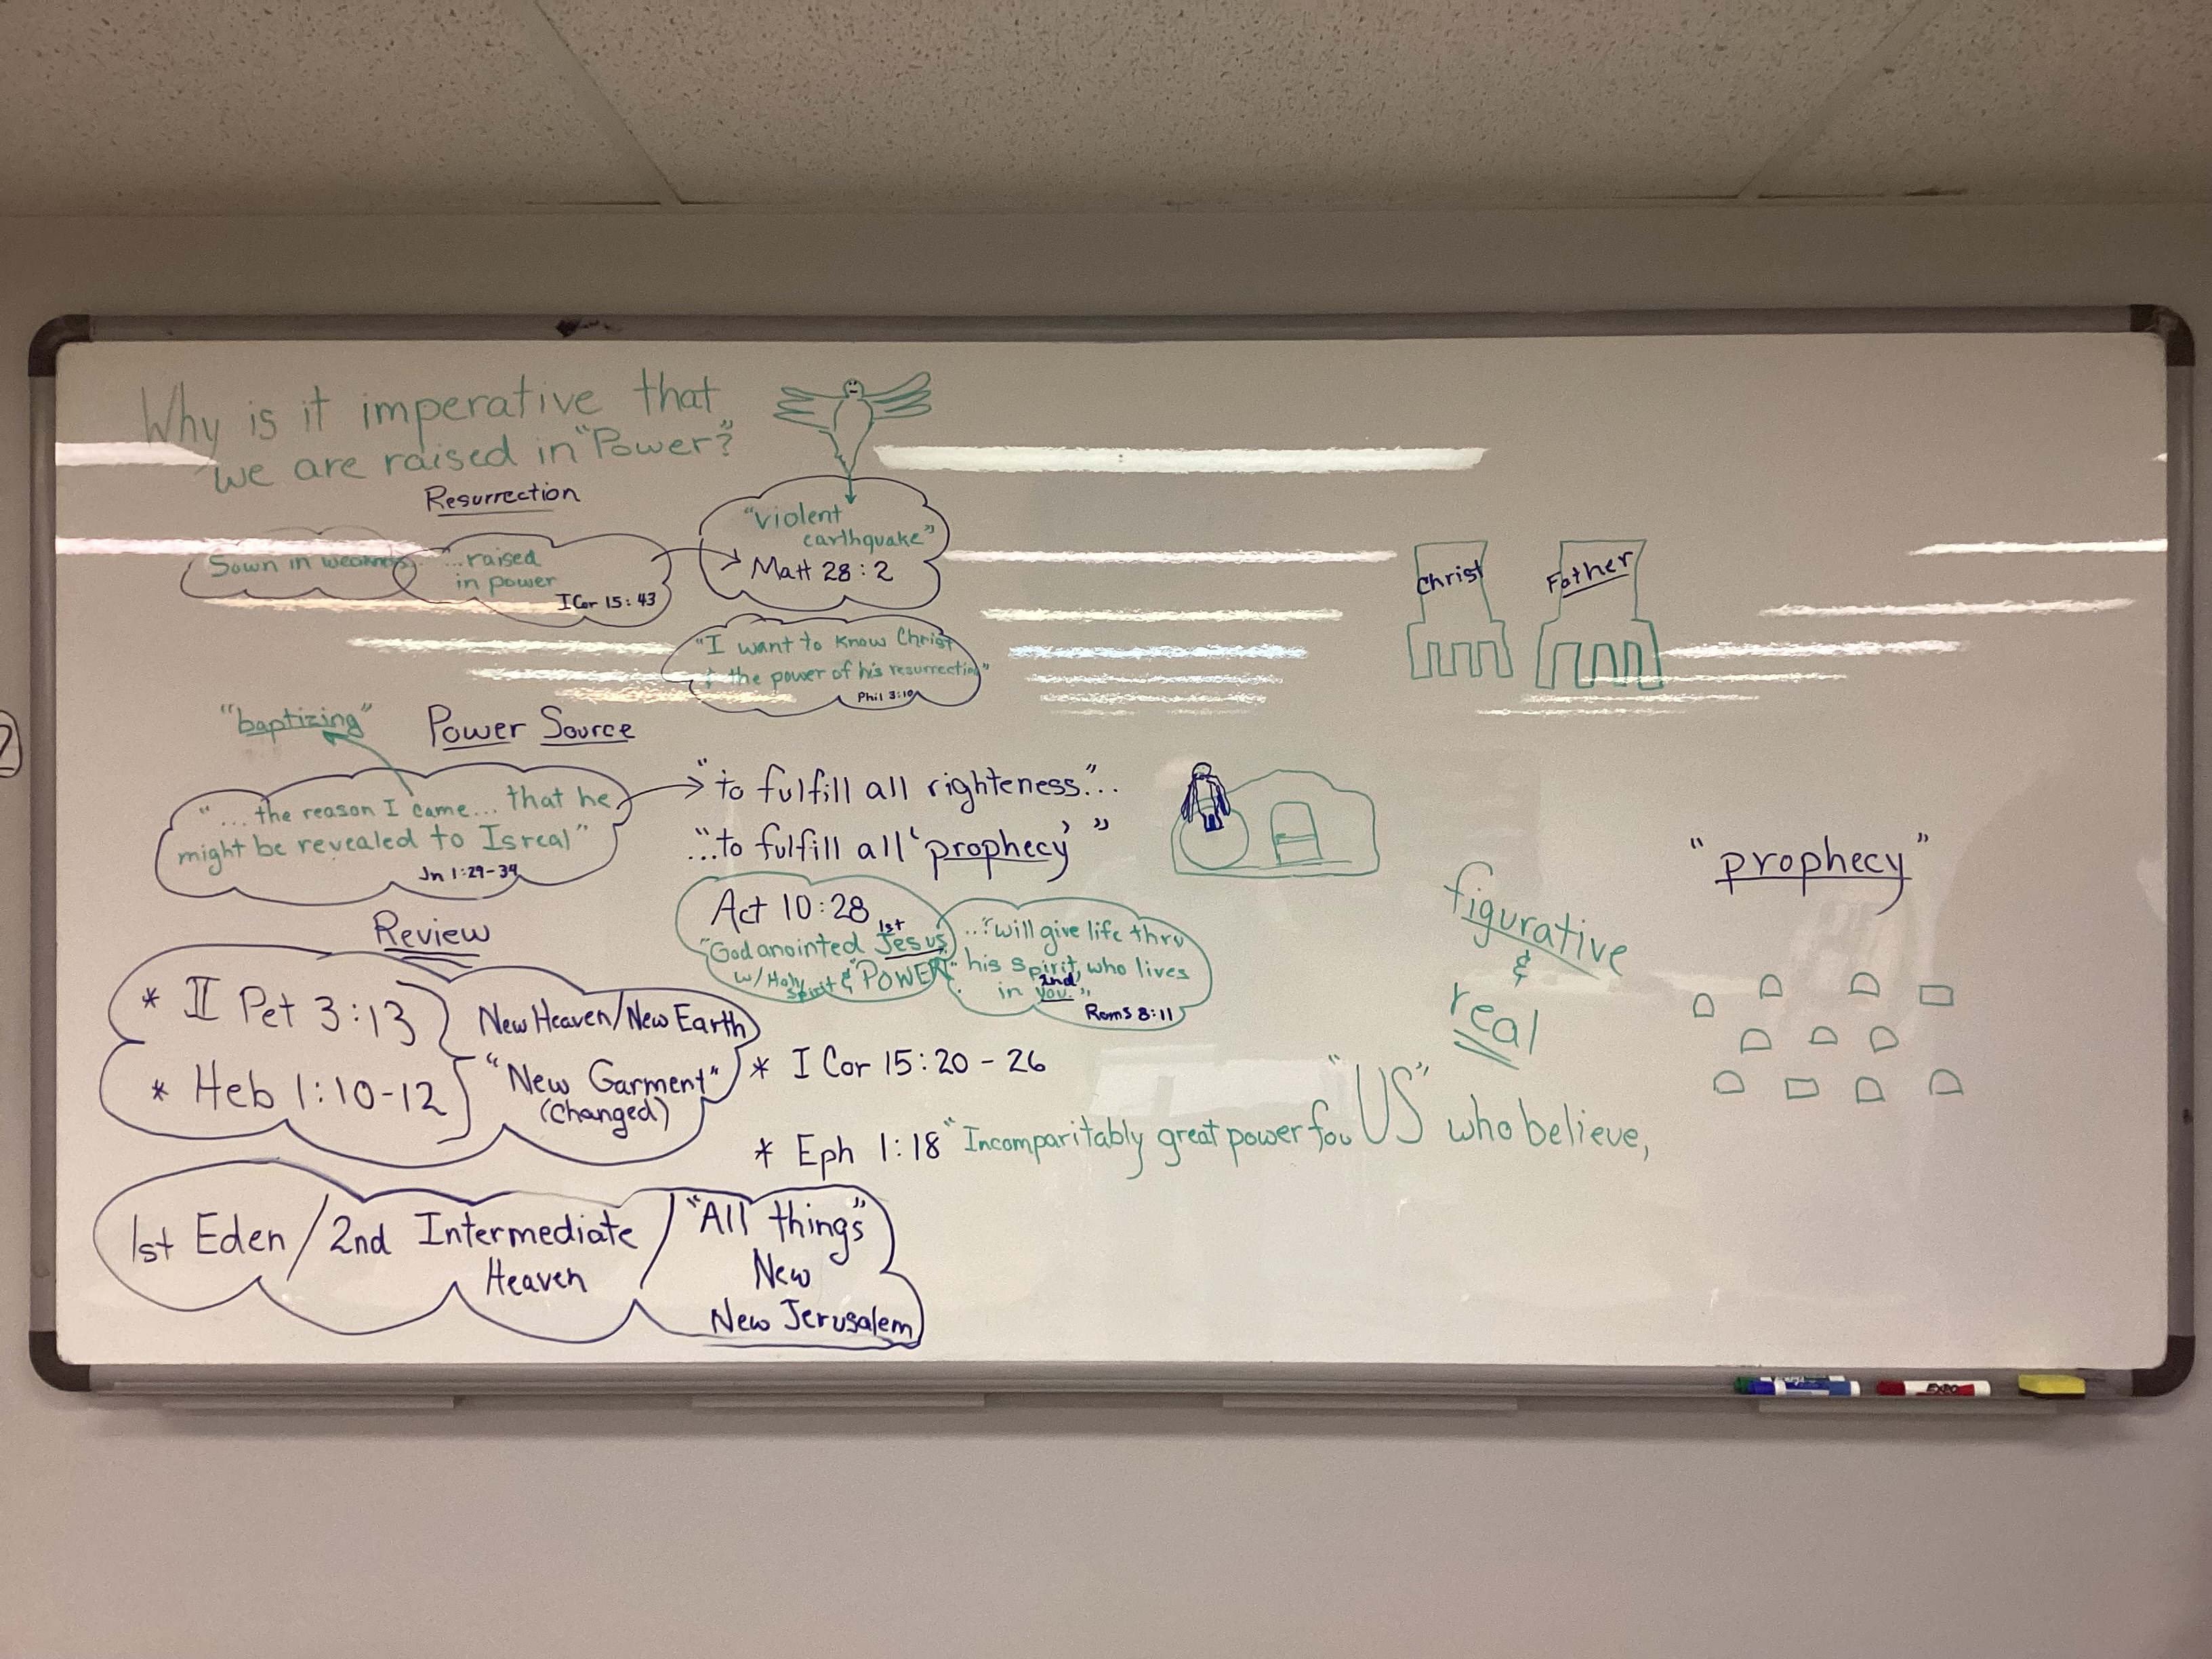 Why is it imperative that
we are raised in "Power?"
Resurrection
Sown in weakness...
"...raised
in power
I Cor 15:43
"violent
earthquake"
Matt 28:2
"I want to know Christ
& the power of his resurrection"
Phil 3:10
Christ
Father
"baptizing"
Power Source
"...the reason I came... that he
might be revealed to Isreal"
Jn 1:29-34
"to fulfill all righteness."..
"...to fulfill all 'prophecy' "
Act 10:28
1st
"God anointed Jesus
w/ Holy
spirit & "POWER"
..."will give life thru
his spirit, who lives
2nd
in you."
Roms 8:11
figurative
&
real
"prophecy"
Review
* II Pet 3:13
New Heaven/New Earth
* Heb 1:10-12
"New Garment"
(Changed)
* I Cor 15:20-26
* Eph 1:18 "Incomparitably great power for "US" who believe,
1st Eden / 2nd Intermediate
Heaven
/ "All things"
New
New Jerusalem
EXPO